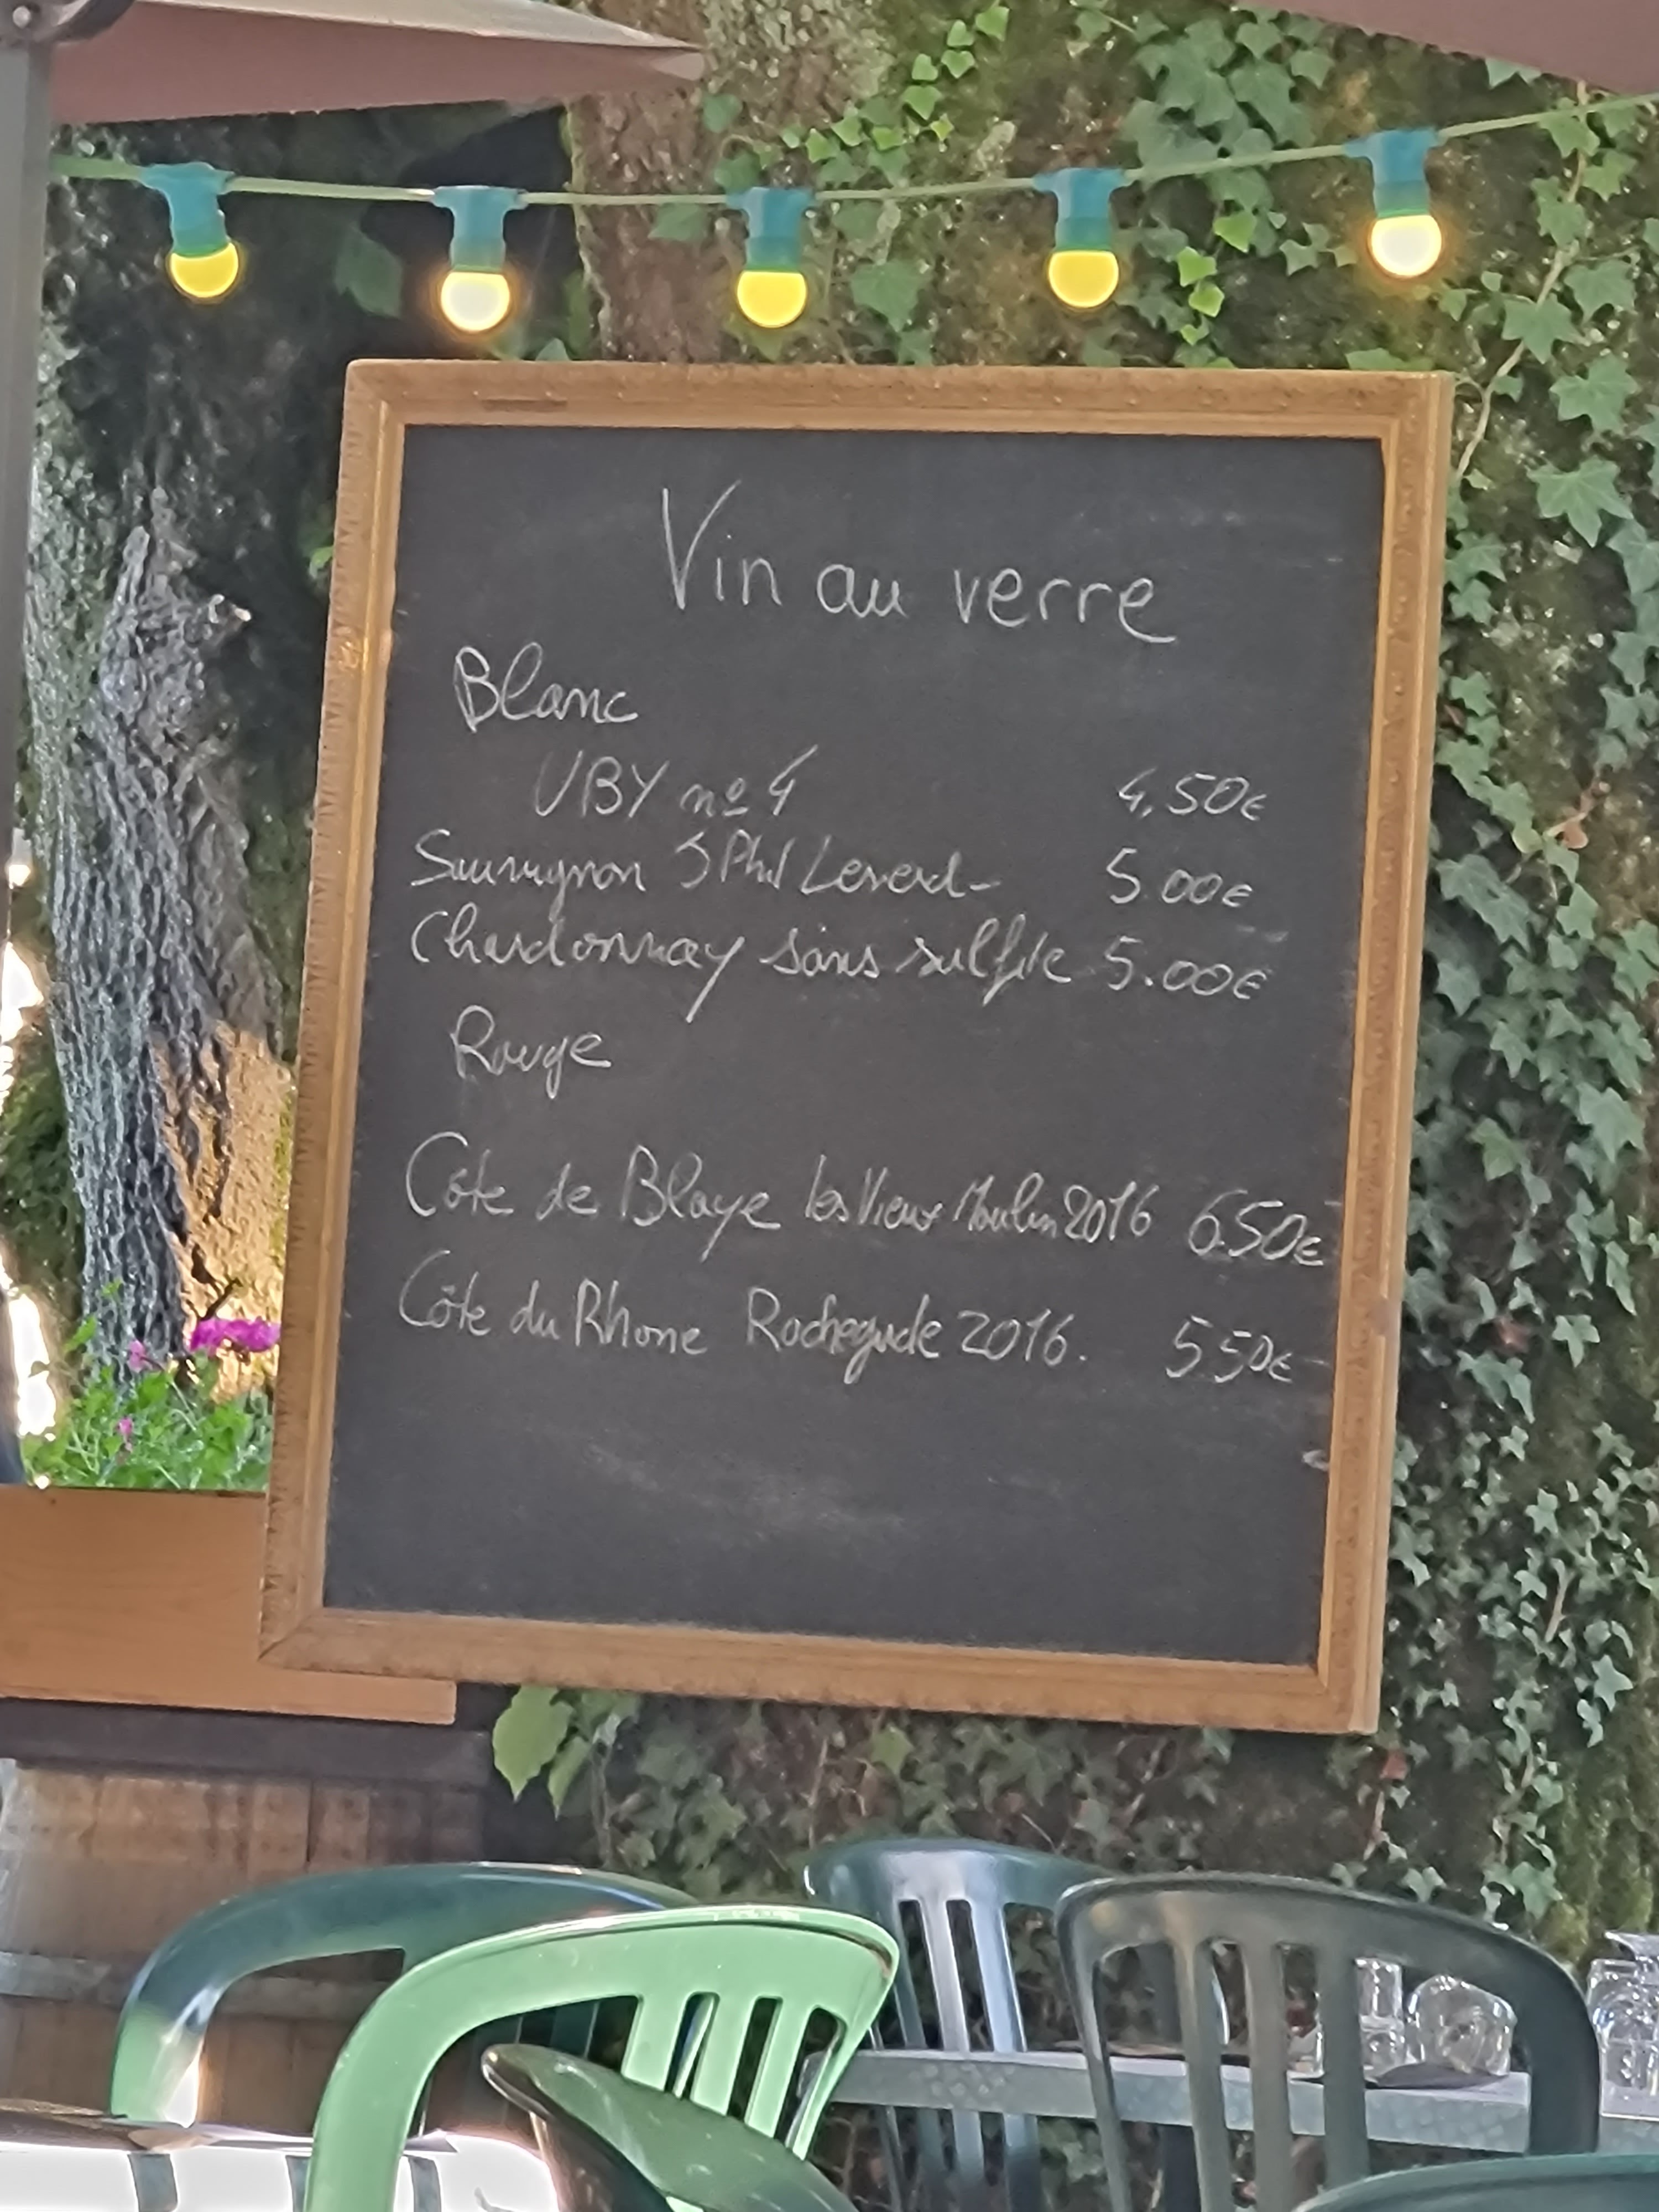 Vin au verre
Blanc
UBY nº 4 4,50€
Sauvignon 5.00€
Chardonnay sans sulfite 5.00€
Rouge
Côte de Blaye les Vieux Moulin 2016 6.50€
Côte du Rhone Rochegude 2016. 5.50€